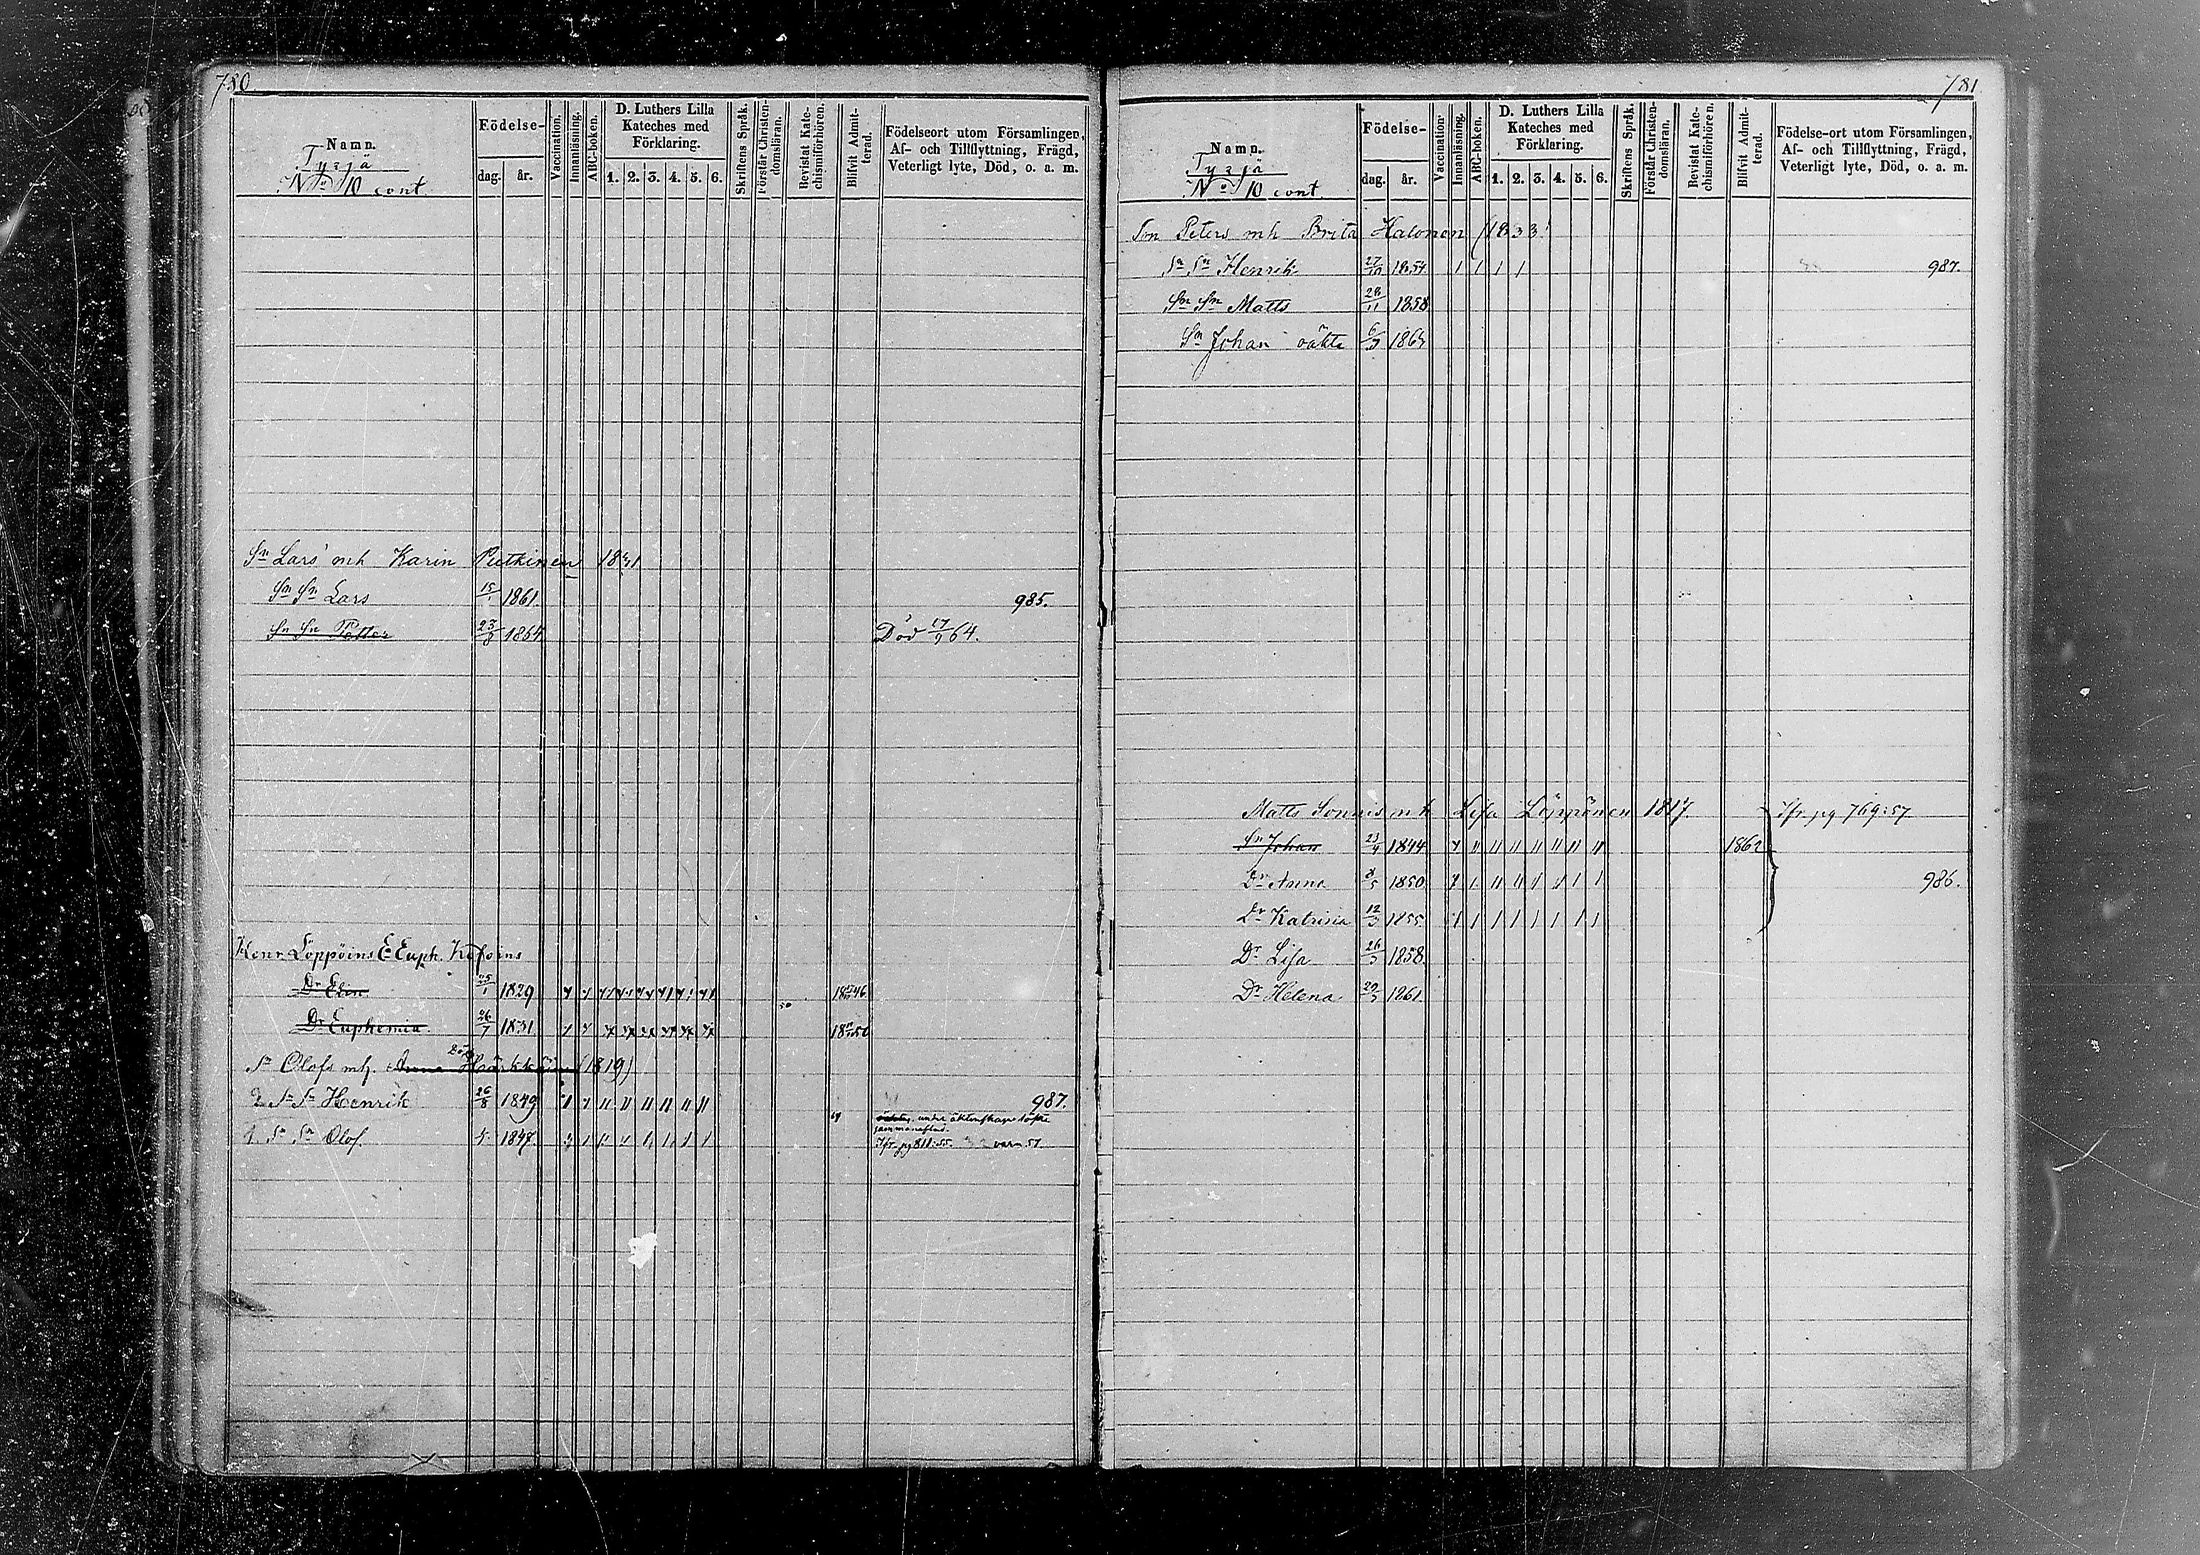 780
Namn.
Tyrjä
No 10 cont.
Födelse-
dag.
år.
Vaccination.
Innanläsning.
ABC-boken.
D. Luthers Lilla
Kateches med
Förklaring.
1. 2. 3. 4. 5. 6.
Skriftens Språk.
Förstår Christen-
domsläran.
Bevistat Kate-
chismiförhören.
Blifvit Admit-
terad.
Födelseort utom Församlingen,
Af- och Tillflyttning, Frägd,
Veterligt lyte, Död, o. a. m.
Sn Lars' mh Karin Putkinen 1841
Sn Sn Lars 15/1 1861. 985.
Sn Sn Petter 23/8 1864 Död 17/9 64.
Henr. Löppöins E Euph.
Dr Elin 25/1 1829 46
Dr Euphemia 26/7 1831 50
Sn Olofs mh. Anna Härkköin (1819)
2 Sn Sn Henrik 26/8 1849 987.
under äktenskaps löfte
sammanaflad.
1. Sn Sn Olof. 1847. Jfr pg 811:55. varn. 57.
781
Namn.
Tyrjä
No 10 cont.
Födelse-
dag.
år.
Vaccination
Innanläsning.
ABC-boken.
D. Luthers Lilla
Kateches med
Förklaring.
1. 2. 3. 4. 5. 6.
Skriftens Språk.
Förstår Christen-
domsläran.
Bevistat Kate-
chismiförhören.
Blifvit Admit-
terad.
Födelse-ort utom Församlingen,
Af- och Tillflyttning, Frägd,
Veterligt lyte, Död, o. a. m.
Sn Peters mh Brita Halonen (1833)
Sn Sn Henrik 27/10 1854 987.
Sn Sn Matts 28/11 1858
Sn Johan oäkta 1863
Matts Sonnis mh Lisa Löppönen 1817. Jfr pg 769:57
Sn Johan 23/4 1844 1862
Dr Anna 8/5 1850 986.
Dr Katrina 12/3 1855
Dr Lisa 26/3 1858
Dr Helena 20/3 1861